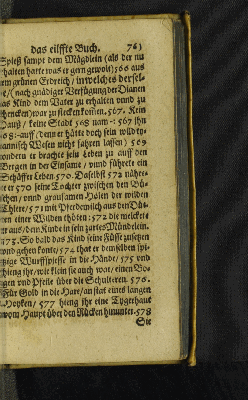 das eilffte Buch. 763
Spieß sampt dem Mägdlein (als der nu
halten harte was er gern gewolt) 566 aus
nem grünen Erdreich / in welches derselbe
e/ (nach gnädiger Verfügung der Dianen
as Kind dem Vater zu erhalten vnnd zu
chrecken) war zu stecken komen. 567. Kein
Hauß / keine Stadt 568 nam-: 567 ihn
68:-auff / denn er hätte doch sein wild ty-
annisch Wesen nicht fahren lassen) 569
ondern er brachte sein Leben zu auff den
Bergen in der Einsame / vnnd führete ein
Schäffer Leben 570. Daselbst 572 nähre-
te er 570 seine Tochter zwischen den Bü-
schen / vnnd grausamen Holen der wilden
Thiere / 571 mit Pferdemilch aus den Dü-
ten einer Wilden thöten: 572 die melckete
er aus / dem Kinde in sein zartes Mündelein.
573. So bald das Kind seine Füsse zusetzen
vnd gehen konte / 574 that er demselben spi-
tzige Wurffspiesse in die Hände / 575 vnd
hieng ihr / wie klein sie auch war / einen Bo-
gen vnd Pfeile über die Schulteren. 576.
Für Gold in die Hare / an stat eines langen
Hopken / 577 hieng ihr eine Tygerhaut
vom Haupt über den Rücken hinunter. 578
Sie